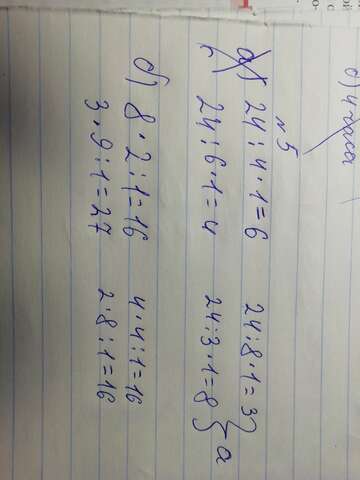 б) 4 часа
№5
а) 24 : 4 · 1 = 6 24 : 8 · 1 = 3
24 : 6 · 1 = 4 24 : 3 · 1 = 8 } а
б) 8 · 2 : 1 = 16 4 · 4 : 1 = 16
3 · 9 : 1 = 27 2 · 8 : 1 = 16